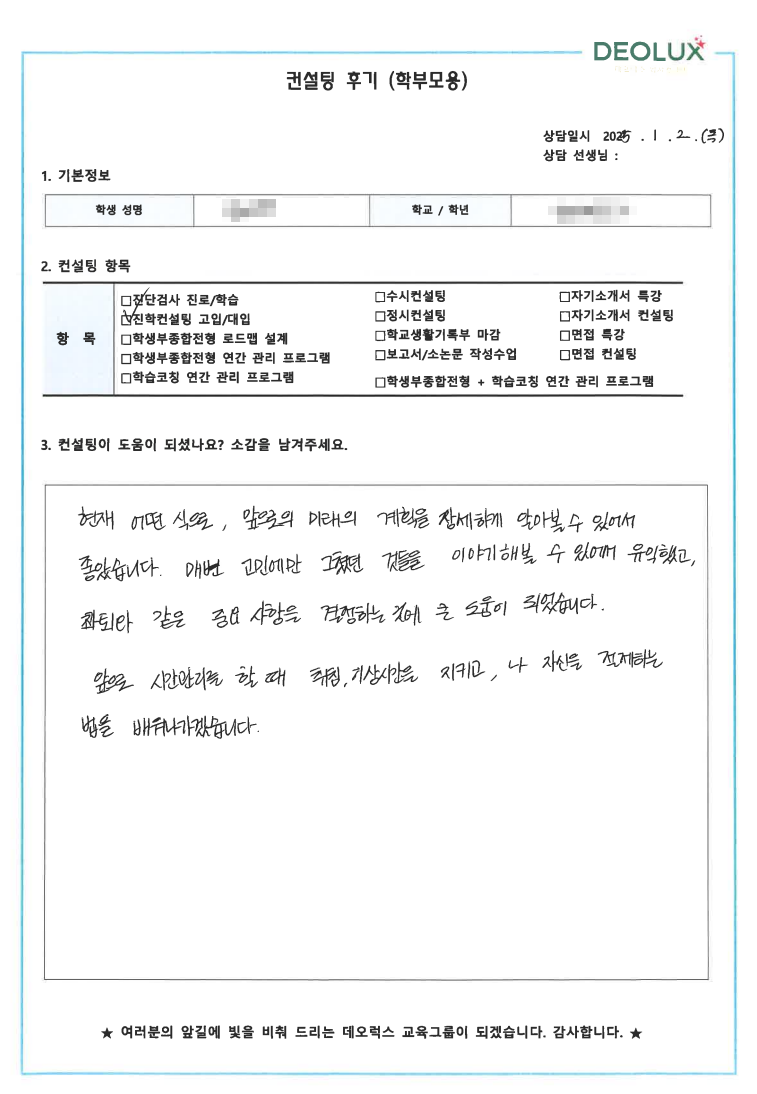 DEOLUX
컨설팅 후기 (학부모용)
상담일시 2025 . 1 . 2 . (목)
상담 선생님 :
1. 기본정보
학생 성명 학교 / 학년
2. 컨설팅 항목
항 목
□진단검사 진로/학습 □수시컨설팅 □자기소개서 특강
☑진학컨설팅 고입/대입 □정시컨설팅 □자기소개서 컨설팅
□학생부종합전형 로드맵 설계 □학교생활기록부 마감 □면접 특강
□학생부종합전형 연간 관리 프로그램 □보고서/소논문 작성수업 □면접 컨설팅
□학습코칭 연간 관리 프로그램 □학생부종합전형 + 학습코칭 연간 관리 프로그램
3. 컨설팅이 도움이 되셨나요? 소감을 남겨주세요.
현재 어떤 식으로, 앞으로의 미래의 계획을 상세하게 알아볼 수 있어서
좋았습니다. 매번 고민에만 그쳤던 것들을 이야기해볼 수 있어서 유익했고,
자퇴라 같은 중요 사항을 결정하는 것에 큰 도움이 되었습니다.
앞으로 시간관리를 할 때 취침, 기상시간을 지키고, 나 자신을 절제하는
법을 배워나가겠습니다.
★ 여러분의 앞길에 빛을 비춰 드리는 데오럭스 교육그룹이 되겠습니다. 감사합니다. ★